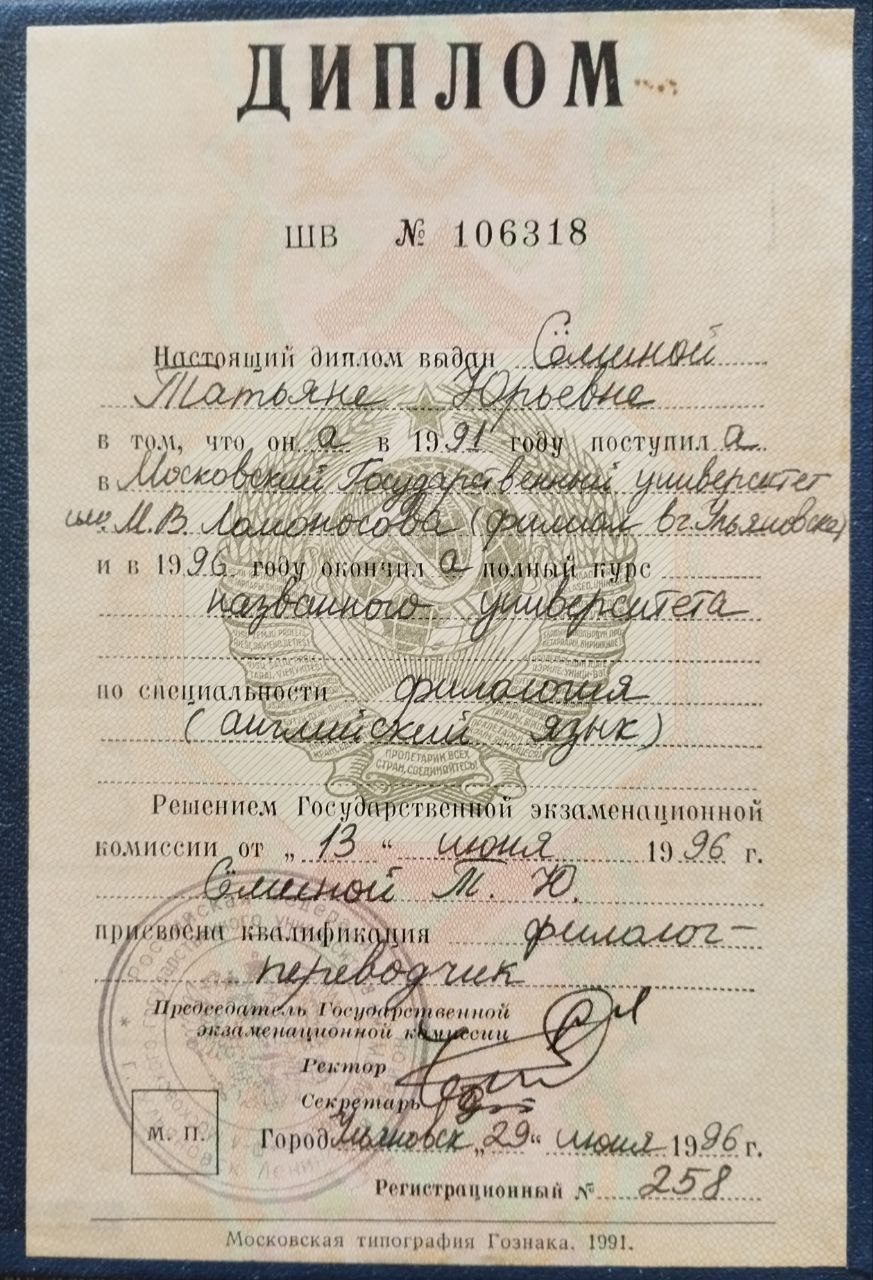 ДИПЛОМ
ШВ № 106318
Настоящий диплом выдан Сёминой
Татьяне Юрьевне
в том, что он а в 1991 году поступил а
в Московский Государственный университет
им. М.В Ломоносова (филиал в г. Ульяновске)
и в 1996 году окончил а полный курс
названного университета
по специальности филология
(английский язык)
ПРОЛЕТАРИИ ВСЕХ
СТРАН, СОЕДИНЯЙТЕСЬ!
Решением Государственной экзаменационной
комиссии от „13“ июня 1996 г.
Сёминой Т. Ю.
присвоена квалификация филолог-
переводчик
Председатель Государственной
экзаменационной комиссии
Ректор
Секретарь
М. П.
Город Ульяновск „29“ июня 1996 г.
Регистрационный № 258
Московская типография Гознака. 1991.